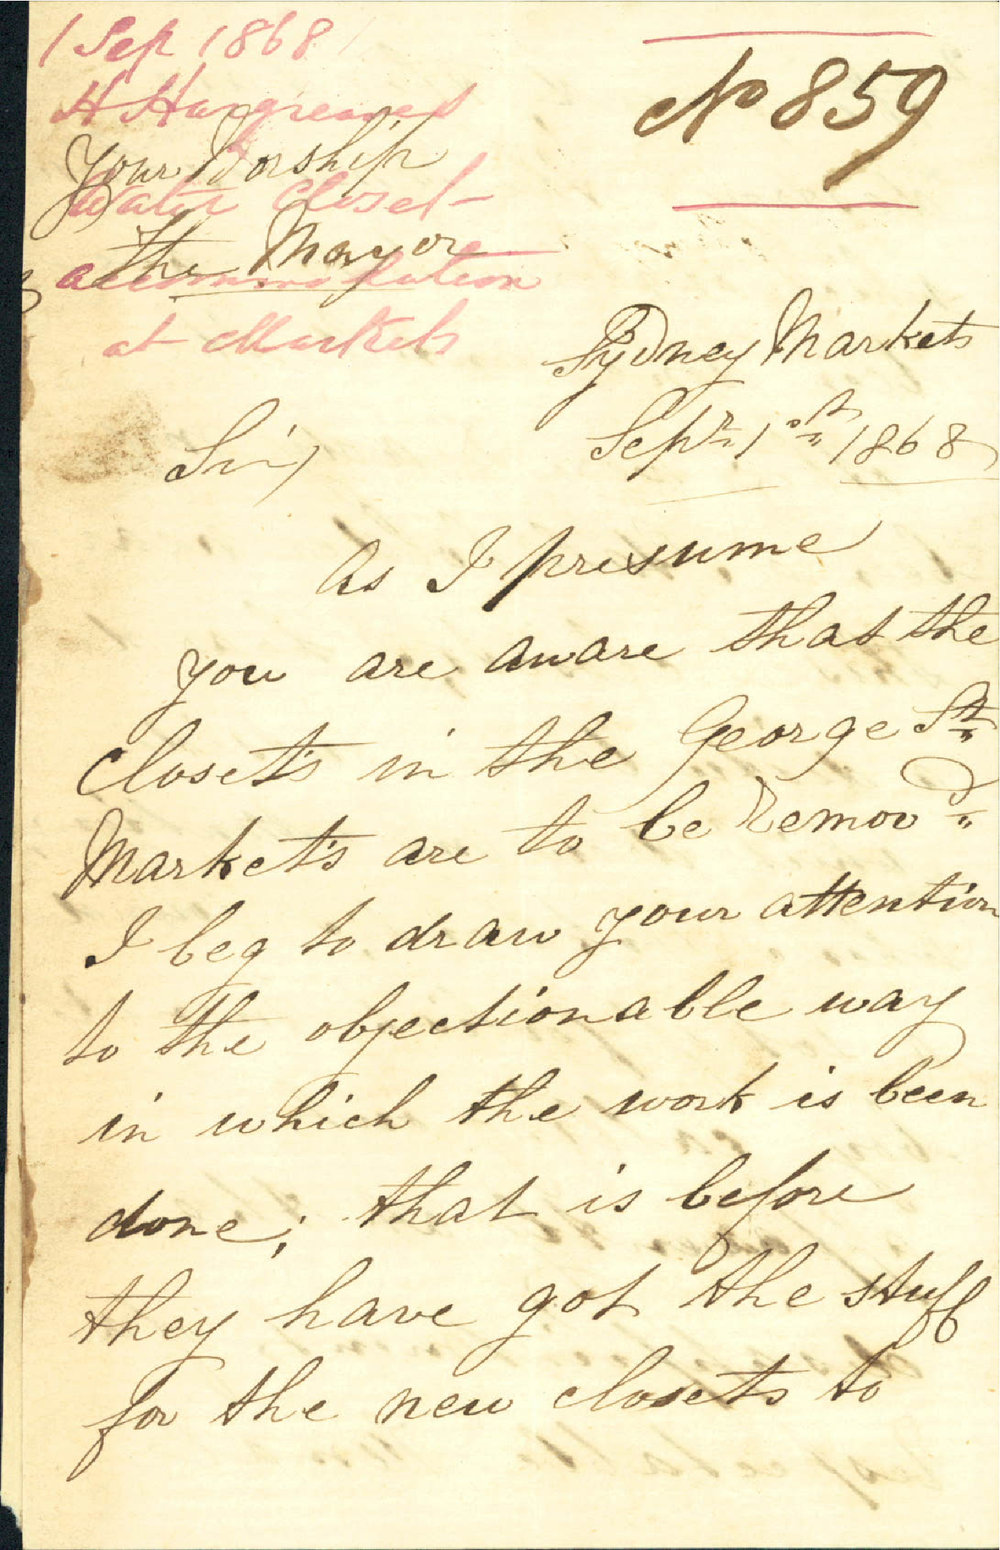 1 Sep 1868
H Hargreaves
Water Closet
accommodation
at Markets
No 859
Your Worship
The Mayor
Sydney Markets
Sepr 1st 1868
Sir,
As I presume
you are aware that the
Closets in the George St
Markets are to be Remov'd
I beg to draw your attention
to the objectionable way
in which the work is been
done; that is before
they have got the stuff
for the new closets to